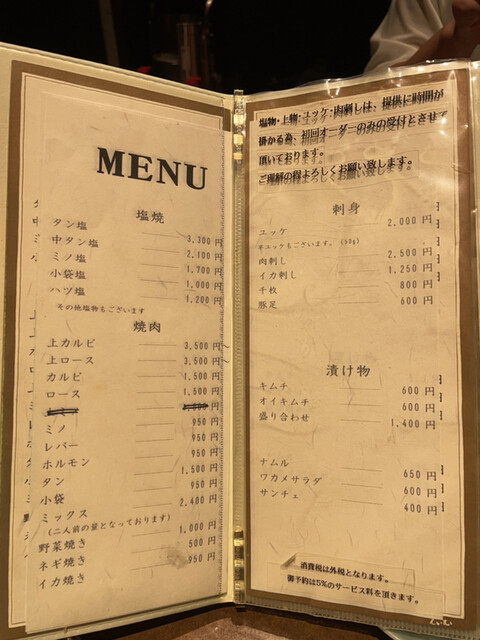 MENU
塩焼
タン塩 3,300円
中タン塩 2,100円
ミノ塩 1,700円
小袋塩 1,000円
ハツ塩 1,200円
その他塩物もございます
焼肉
上カルビ 3,500円
上ロース 3,500円
カルビ 1,500円
ロース 1,500円
ミノ 950円
レバー 950円
ホルモン 950円
タン 1,500円
小袋 950円
ミックス 2,400円
(二人前の量となっております)
野菜焼き 1,000円
ネギ焼き 500円
イカ焼き 950円
塩物・上物・ユッケ・肉刺しは、提供に時間が
掛かる為、初回オーダーのみの受付とさせて
頂いております。
ご理解の程よろしくお願い致します。
刺身
ユッケ 2,000円
半ユッケもございます。(60g)
肉刺し 2,500円
イカ刺し 1,250円
千枚 800円
豚足 600円
漬け物
キムチ 600円
オイキムチ 600円
盛り合わせ 1,400円
ナムル 650円
ワカメサラダ 600円
サンチェ 400円
消費税は外税となります。
御予約は5%のサービス料を頂きます。